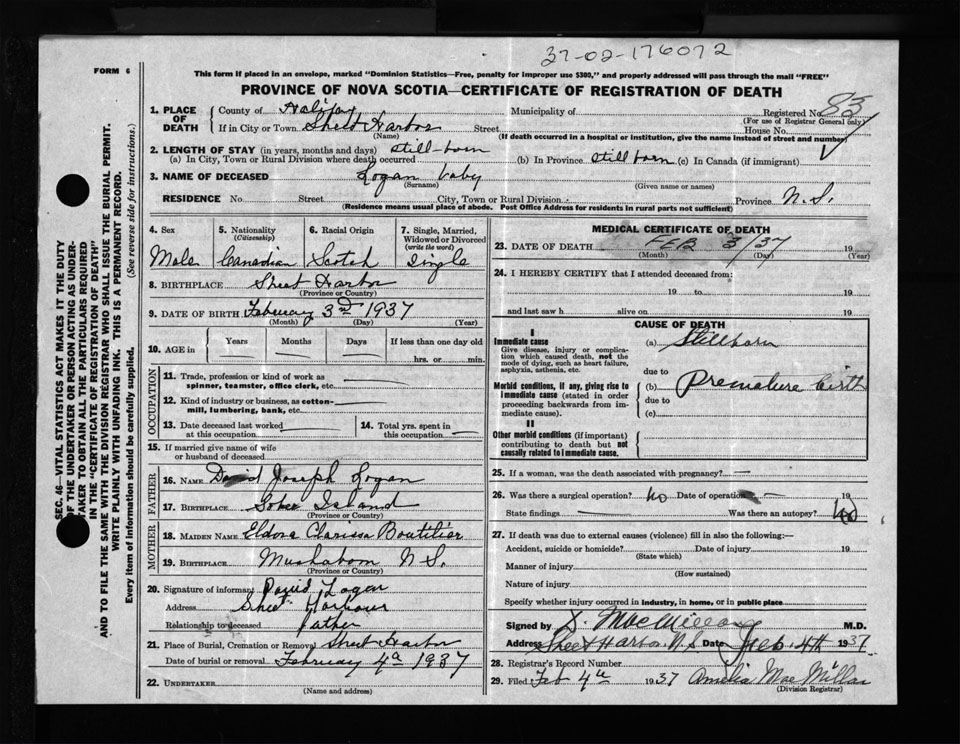 37-02-176072
FORM 6
This form if placed in an envelope, marked "Dominion Statistics—Free, penalty for improper use $300," and properly addressed will pass through the mail "FREE"
PROVINCE OF NOVA SCOTIA—CERTIFICATE OF REGISTRATION OF DEATH
1. PLACE OF DEATH
County of Halifax Municipality of Registered No. 83
(For use of Registrar General only)
If in City or Town Sheet Harbor Street House No.
(Name) (If death occurred in a hospital or institution, give the name instead of street and number)
2. LENGTH OF STAY (in years, months and days) still-born
(a) In City, Town or Rural Division where death occurred (b) In Province still born (c) In Canada (if immigrant)
3. NAME OF DECEASED Logan baby
(Surname) (Given name or names)
RESIDENCE No. Street City, Town or Rural Division Province N.S.
(Residence means usual place of abode. Post Office Address for residents in rural parts not sufficient)
4. Sex
Male
5. Nationality
(Citizenship)
Canadian
6. Racial Origin
Scotch
7. Single, Married, Widowed or Divorced
(write the word)
Single
8. BIRTHPLACE Sheet Harbor
(Province or Country)
9. DATE OF BIRTH February 3rd 1937
(Month) (Day) (Year)
10. AGE in
Years Months Days If less than one day old
hrs. or min.
OCCUPATION
11. Trade, profession or kind of work as
spinner, teamster, office clerk, etc.
12. Kind of industry or business, as cotton-
mill, lumbering, bank, etc.
13. Date deceased last worked
at this occupation
14. Total yrs. spent in
this occupation
15. If married give name of wife
or husband of deceased
FATHER
16. NAME David Joseph Logan
17. BIRTHPLACE Sober Island
(Province or Country)
MOTHER
18. MAIDEN NAME Eldora Clarissa Boutilier
19. BIRTHPLACE Mushaboom N.S.
(Province or Country)
20. Signature of informant David Logan
Address Sheet Harbour
Relationship to deceased father
21. Place of Burial, Cremation or Removal Sheet Harbor
Date of burial or removal February 4th 1937
22. UNDERTAKER
(Name and address)
MEDICAL CERTIFICATE OF DEATH
23. DATE OF DEATH FEB 3/37 19
(Month) (Day) (Year)
24. I HEREBY CERTIFY that I attended deceased from:
19 to 19
and last saw h alive on 19
CAUSE OF DEATH
I
Immediate cause
Give disease, injury or complica-
tion which caused death, not the
mode of dying, such as heart failure,
asphyxia, asthenia, etc.
(a) Stillborn
due to
Morbid conditions, if any, giving rise to
immediate cause (stated in order
proceeding backwards from im-
mediate cause).
(b) Premature birth
due to
(c)
II
Other morbid conditions (if important)
contributing to death but not
causally related to immediate cause.
25. If a woman, was the death associated with pregnancy?
26. Was there a surgical operation? No Date of operation 19
State findings Was there an autopsy? No
27. If death was due to external causes (violence) fill in also the following:—
Accident, suicide or homicide? Date of injury 19
(State which)
Manner of injury
(How sustained)
Nature of injury
Specify whether injury occurred in industry, in home, or in public place
Signed by MacMillan M.D.
Address Sheet Harbor N.S. Date Feb. 4th 1937
28. Registrar's Record Number
29. Filed Feb 4th 1937 Amelia MacMillan
(Division Registrar)
SEC. 46—VITAL STATISTICS ACT MAKES IT THE DUTY
OF THE UNDERTAKER OR PERSON ACTING AS UNDER-
TAKER TO OBTAIN ALL THE PARTICULARS REQUIRED
IN THE "CERTIFICATE OF REGISTRATION OF DEATH"
AND TO FILE THE SAME WITH THE DIVISION REGISTRAR WHO SHALL ISSUE THE BURIAL PERMIT.
WRITE PLAINLY WITH UNFADING INK. THIS IS A PERMANENT RECORD.
Every item of information should be carefully supplied. (See reverse side for instructions.)